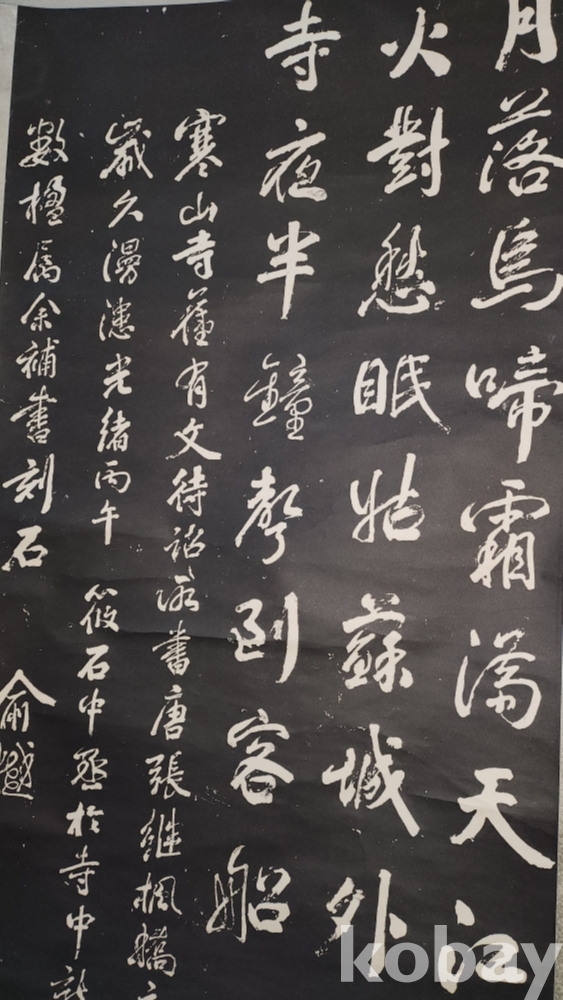 月落烏啼霜滿天江
火對愁眠姑蘇城外
寺夜半鐘聲到客船
寒山寺舊有文待詔所書唐張繼楓橋
歲久漫漶光緒丙午 筱石中丞於寺中新
數楹屬余補書刻石 俞樾
kobay